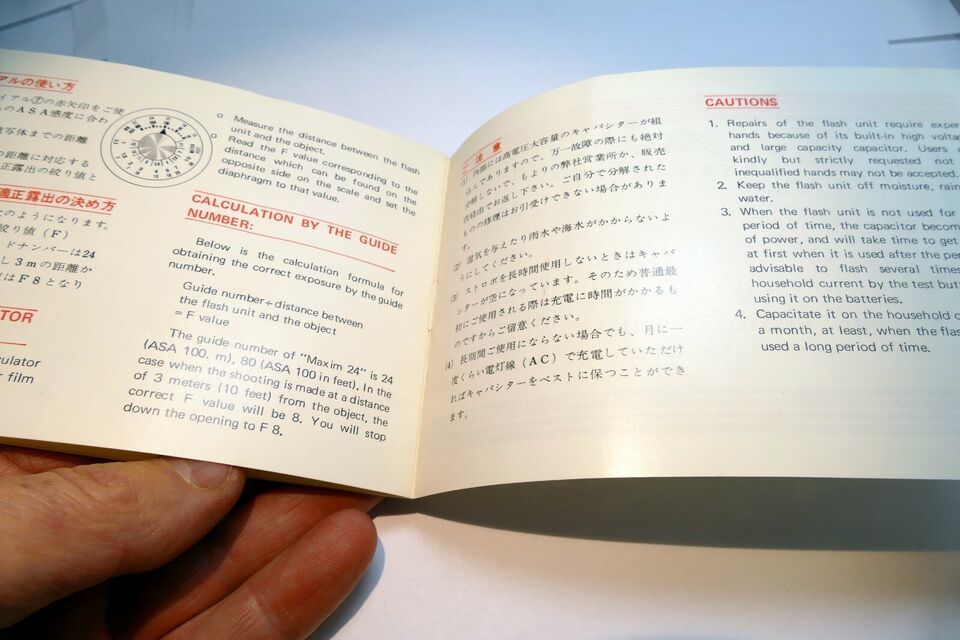 アルの使い方
イアル⑦の赤矢印をご使
のＡＳＡ感度に合わ
写体までの距離
の距離に対応する
正露出の絞り値と
適正露出の決め方
のようになります。
絞り値（Ｆ）
ドナンバーは24
し３ｍの距離か
はＦ８となり
TOR
culator
r film
o Measure the distance between the flash
unit and the object.
o Read the F value corresponding to the
distance which can be found on the
opposite side on the scale and set the
diaphragm to that value.
CALCULATION BY THE GUIDE
NUMBER:
Below is the calculation formula for
obtaining the correct exposure by the guide
number.
Guide number÷distance between
the flash unit and the object
= F value
The guide number of "Maxim 24" is 24
(ASA 100. m), 80 (ASA 100 in feet). In the
case when the shooting is made at a distance
of 3 meters (10 feet) from the object, the
correct F value will be 8. You will stop
down the opening to F 8.
注意
(1) 内部には高電圧大容量のキャパシターが組
込んでありますので、万一故障の際にも絶対
分解しないで、もよりの弊社営業所か、販売
店経由でお返し下さい。ご自分で分解された
ものの修理はお引受けできない場合がありま
す。
(2) 湿気を与えたり雨水や海水がかからないよ
うにしてください。
(3) ストロボを長時間使用しないときはキャパ
シターが空になっています。そのため普通最
初にご使用される際は充電に時間がかかるも
のですからご留意ください。
(4) 長期間ご使用にならない場合でも、月に一
度くらい電灯線（ＡＣ）で充電していただけ
ればキャパシターをベストに保つことができ
ます。
CAUTIONS
1. Repairs of the flash unit require exper
hands because of its built-in high voltag
and large capacity capacitor. Users a
kindly but strictly requested not
inequalified hands may not be accepted.
2. Keep the flash unit off moisture, rain
water.
3. When the flash unit is not used for
period of time, the capacitor becom
of power, and will take time to get
at first when it is used after the per
advisable to flash several times
household current by the test butt
using it on the batteries.
4. Capacitate it on the household c
a month, at least, when the flas
used a long period of time.